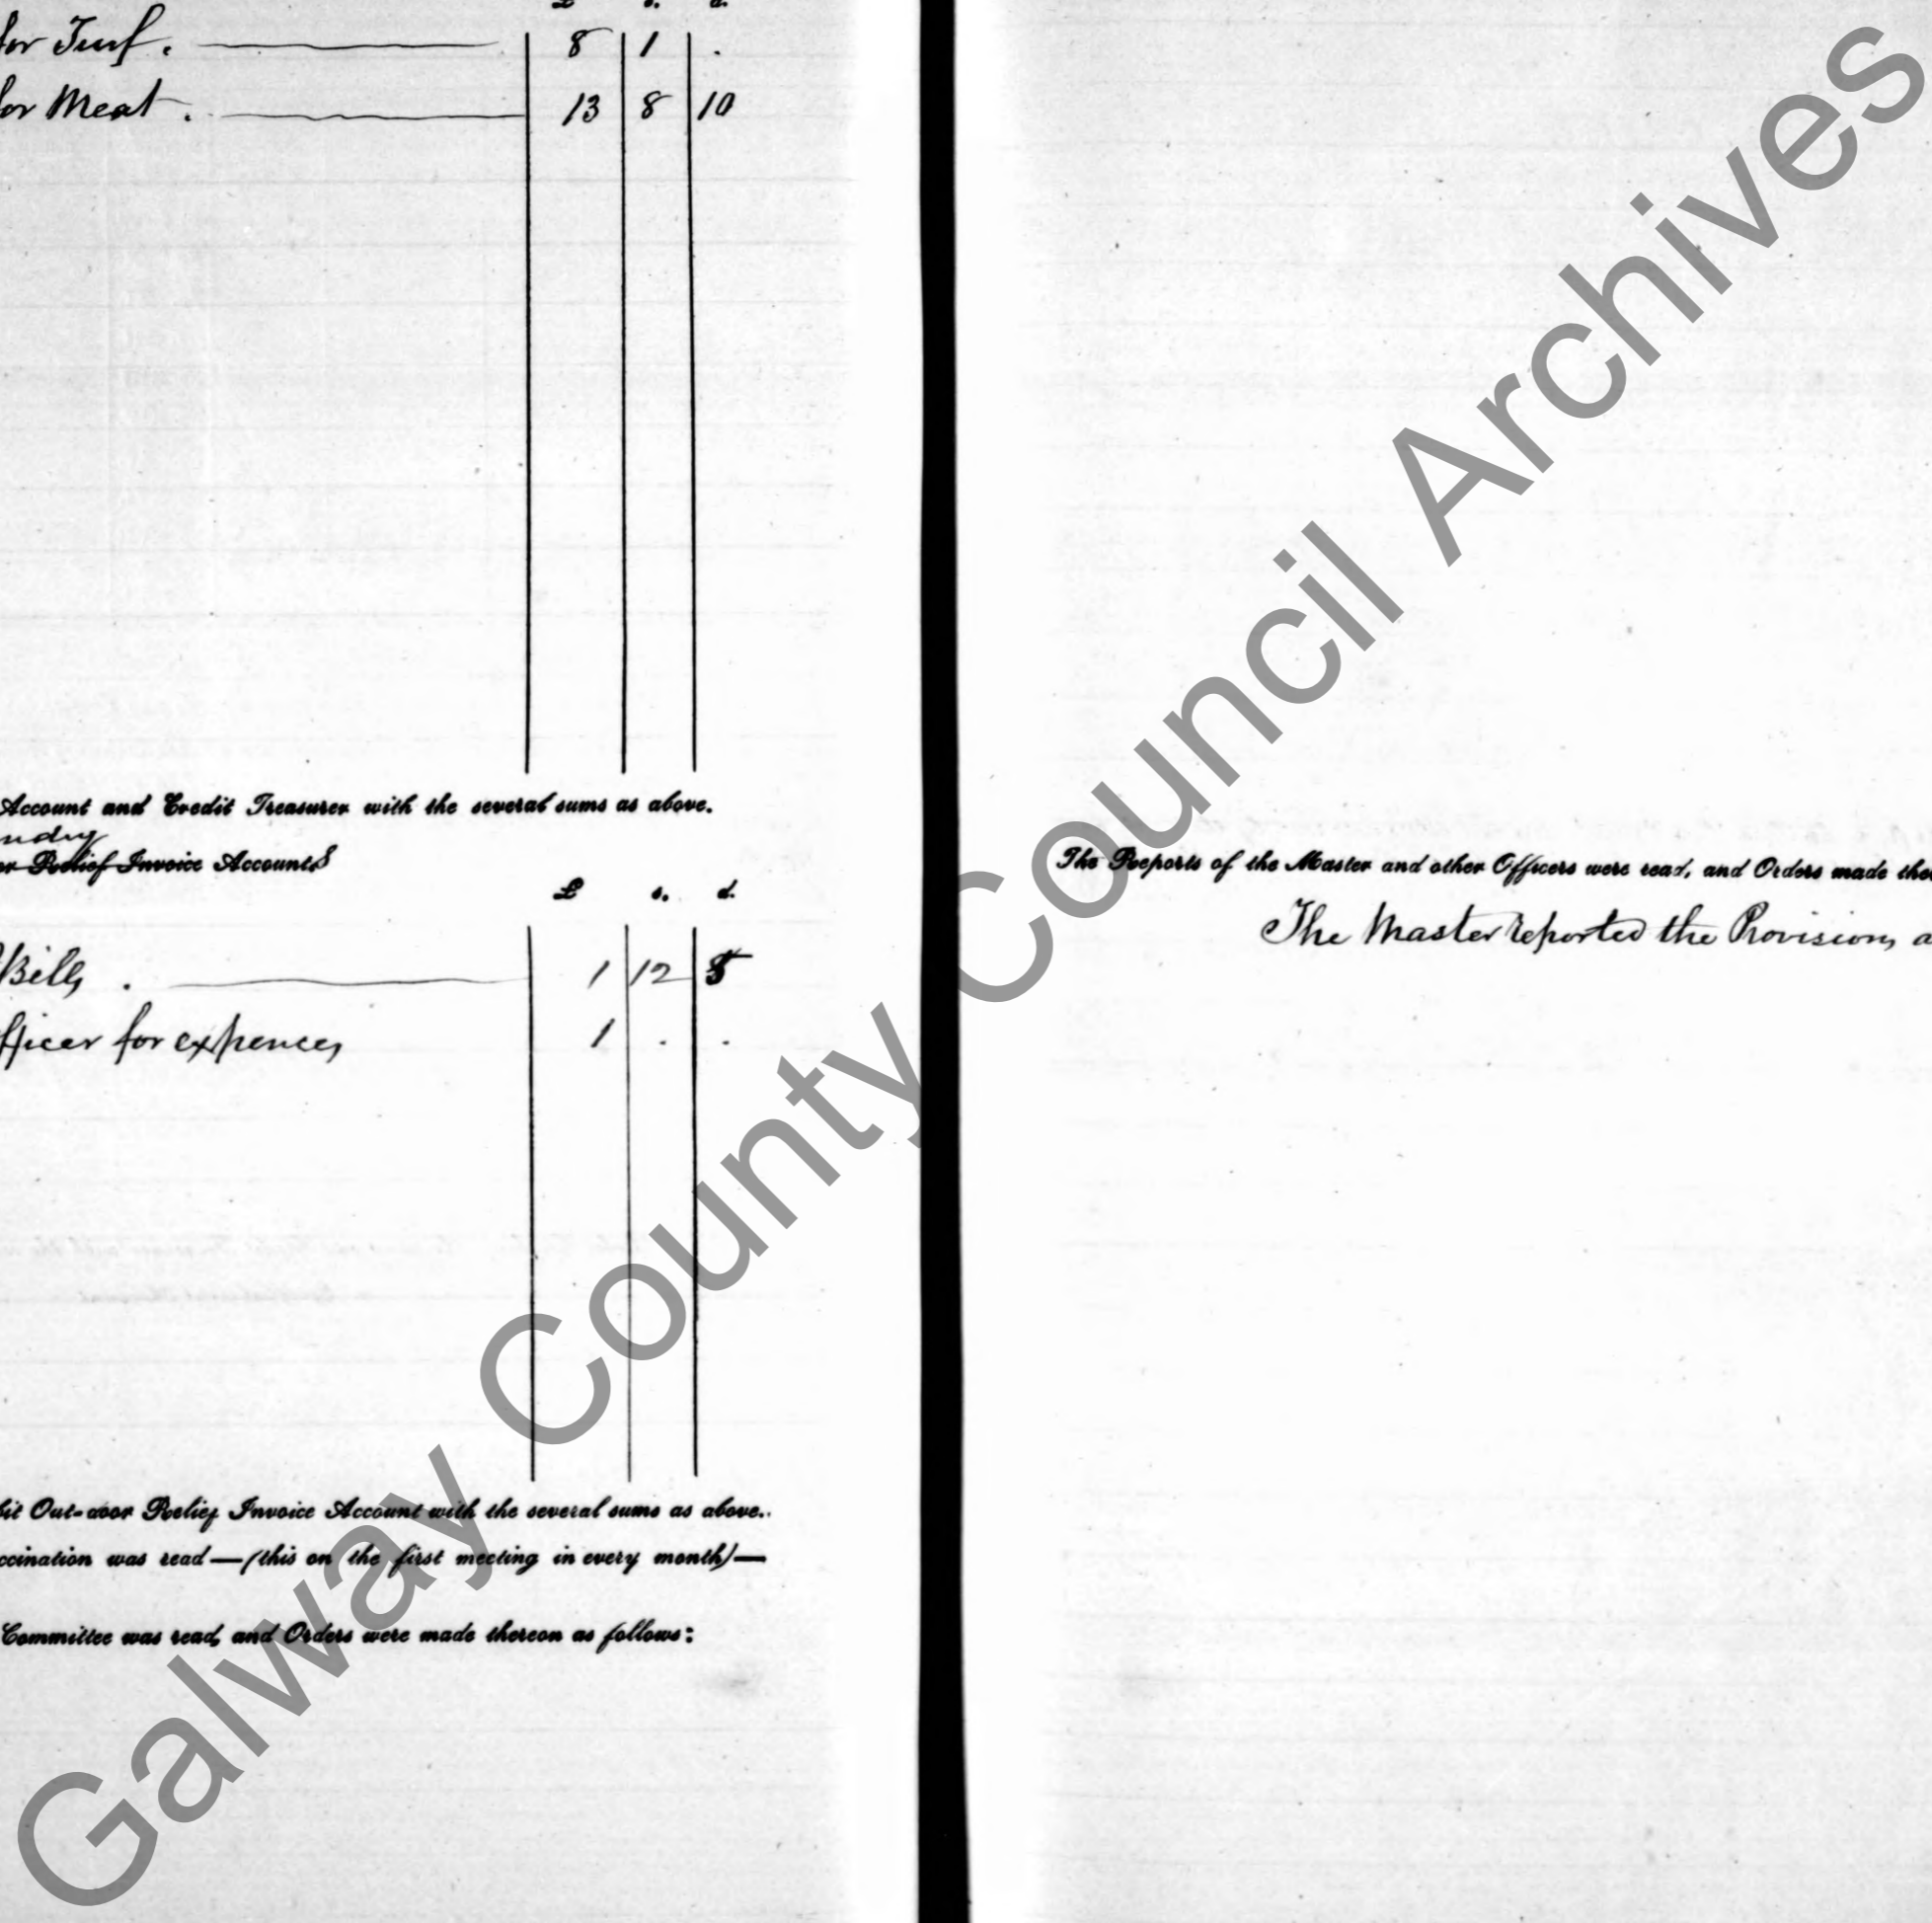 £ s. d.
for Turf. 8 1 .
for Meat. 13 8 10
Account and Credit Treasurer with the several sums as above.
ndry
or Relief Invoice Accounts
£ s. d.
Bills . 1 12
fficer for expences 1 . .
bit Out-door Relief Invoice Account with the several sums as above.
ccination was read—(this on the first meeting in every month)—
Committee was read, and Orders were made thereon as follows:
The Reports of the Master and other Officers were read, and Orders made the
The Master reported the Provisions a
Galway County Council Archives